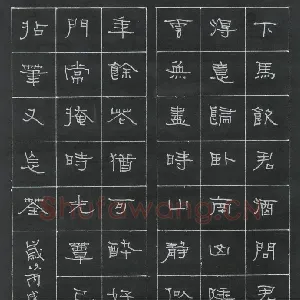 下馬飲君酒問君
得意歸臥南山陲
雲無盡時山靜似
年餘花猶可醉好
門常掩時光簟已
拈筆又忘筌歲次丙戌
shufawang.cn